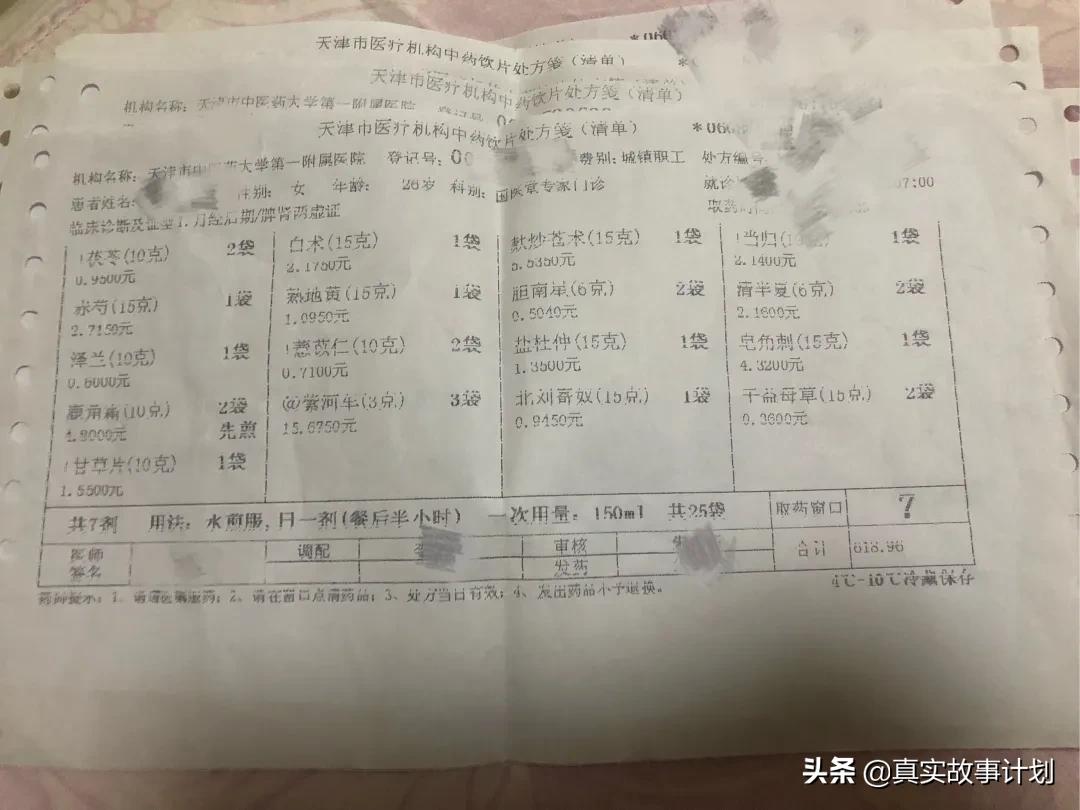 天津市医疗机构中药饮片处方笺（清单） *066
天津市医疗机构中药饮片处方笺（清单）
机构名称: 天津市中医药大学第一附属医院 登记号
天津市医疗机构中药饮片处方笺（清单） *066
机构名称: 天津市中医药大学第一附属医院 登记号: 00 费别: 城镇职工 处方编号
患者姓名: 性别: 女 年龄: 26岁 科别: 国医堂专家门诊 就诊 07:00
临床诊断及证型1.月经后期/脾肾两虚证 取药时间
!茯苓(10克) 2袋 白术(15克) 1袋 麸炒苍术(15克) 1袋 !当归(10克) 1袋
0.9500元 2.1750元 5.5350元 2.1400元
赤芍(15克) 1袋 熟地黄(15克) 1袋 胆南星(6克) 2袋 清半夏(6克) 2袋
2.7150元 1.0950元 0.5040元 2.1600元
泽兰(10克) 1袋 !薏苡仁(10克) 2袋 盐杜仲(15克) 1袋 皂角刺(15克) 1袋
0.6000元 0.7100元 1.3500元 4.3200元
鹿角霜(10克) 2袋 @紫河车(3克) 3袋 北刘寄奴(15克) 1袋 干益母草(15克) 2袋
4.8000元 先煎 15.6750元 0.9450元 0.3600元
!甘草片(10克) 1袋
1.5500元
共7剂 用法: 水煎服,日一剂(餐后半小时) 一次用量: 150ml 共25袋 取药窗口 7
医师签名 调配 审核 合计 618.96
发药
4℃-10℃冷藏保存
药师提示: 1、请遵医嘱服药; 2、请在窗口点清药品; 3、处方当日有效; 4、发出药品不予退换。
头条 @真实故事计划